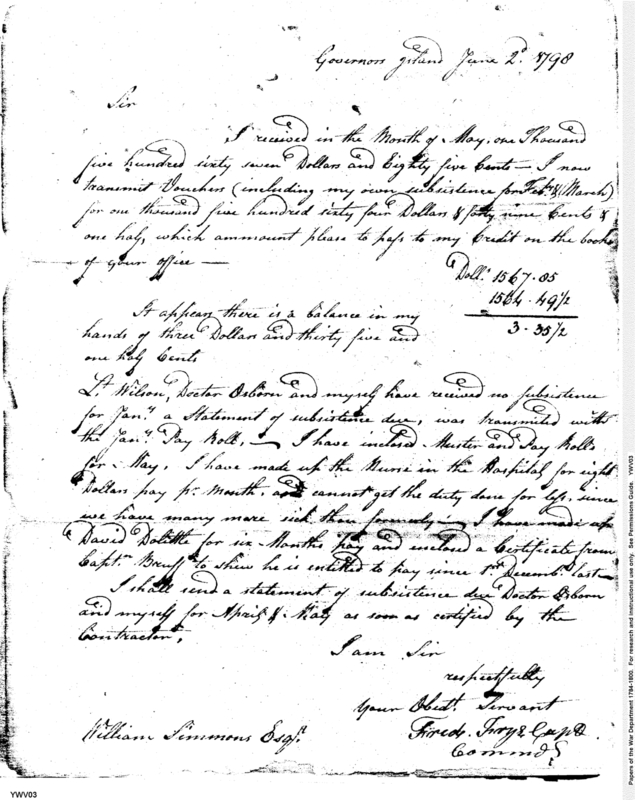 Governors Island June 2d. 1798
Sir
I received in the Month of May, one Thousand
five hundred sixty seven Dollars and Eighty five Cents — I now
transmit Vouchers (including my own subsistence for Feby. & March)
for one thousand five hundred sixty four Dollars & forty nine Cents &
one half, which ammount please to pass to my Credit on the books
of your office —
Dolls. 1567.85
1564.49 1/2
3.35 1/2
It appears there is a balance in my
hands of three Dollars and thirty five and
one half Cents
Lt. Wilson, Doctor Osborn and myself have received no subsistence
for Jany. a Statement of subsistence due, was transmited with
the Jany. Pay Roll, — I have inclosed Muster and Pay Rolls
for May. I have made up the Nurse in the Hospital for eight
Dollars pay pr. Month, and cannot get the duty done for less, since
we have many more sick then formerly — I have made up
David Dolittle for six Months pay and enclosed a Certificate from
Captn. Bruff to shew he is entitled to pay since 1st Decembr. last —
I shall send a statement of subsistence due Doctor Osborn
and myself for April & May as soon as certified by the
Contractor,
I am Sir
respectfully
Your Obedt. Servant
Fredk. Frye Capt
Commdg
William Simmons Esqr.
YWV03
Papers of the War Department 1784-1800. For research and instructional use only. See Permissions Guide. YWV03